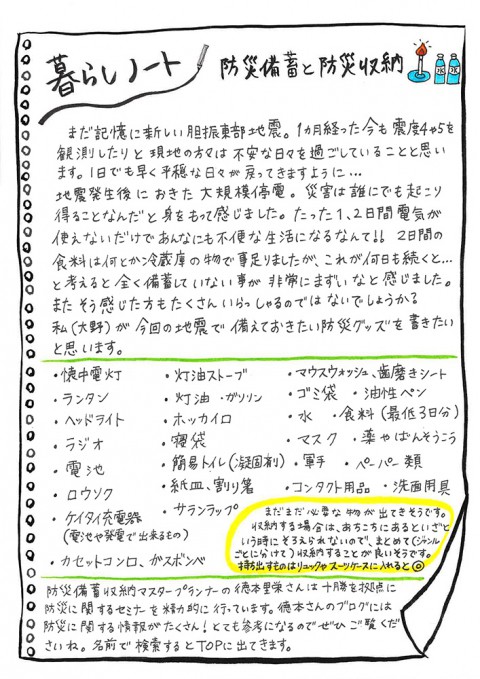 暮らしノート
防災備蓄と防災収納
水 水
まだ記憶に新しい胆振東部地震。1カ月経った今も震度4や5を
観測したりと現地の方々は不安な日々を過ごしていることと思い
ます。1日でも早く平穏な日々が戻ってきますように…
地震発生後におきた大規模停電。災害は誰にでも起こり
得ることなんだと身をもって感じました。たった1、2日間電気が
使えないだけであんなにも不便な生活になるなんて!! 2日間の
食料は何とか冷蔵庫の物で事足りましたが、これが何日も続くと…
と考えると全く備蓄していない事が非常にまずいなと感じました。
またそう感じた方もたくさんいらっしゃるのではないでしょうか。
私(大野)が今回の地震で備えておきたい防災グッズを書きたい
と思います。
・懐中電灯
・ランタン
・ヘッドライト
・ラジオ
・電池
・ロウソク
・ケイタイ充電器
(電池や発電で出来るもの)
・カセットコンロ、ガスボンベ
・灯油ストーブ
・灯油・ガソリン
・ホッカイロ
・寝袋
・簡易トイレ(凝固剤)
・紙皿、割り箸
・サランラップ
・マウスウォッシュ、歯磨きシート
・ゴミ袋 ・油性ペン
・水 ・食料(最低3日分)
・マスク ・薬やばんそうこう
・軍手 ・ペーパー類
・コンタクト用品 ・洗面用具
まだまだ必要な物が出てきそうです。
収納する場合は、あちこちにあるといざと
いう時にそろえられないので、まとめて(ジャンル
ごとに分けて)収納することが良いそうです。
持ち出すものはリュックやスーツケースに入れると◎
防災備蓄収納マスタープランナーの徳本里栄さんは十勝を拠点に
防災に関するセミナーを精力的に行っています。徳本さんのブログには
防災に関する情報がたくさん!とても参考になるのでぜひご覧くだ
さいね。名前で検索するとTOPに出てきます。